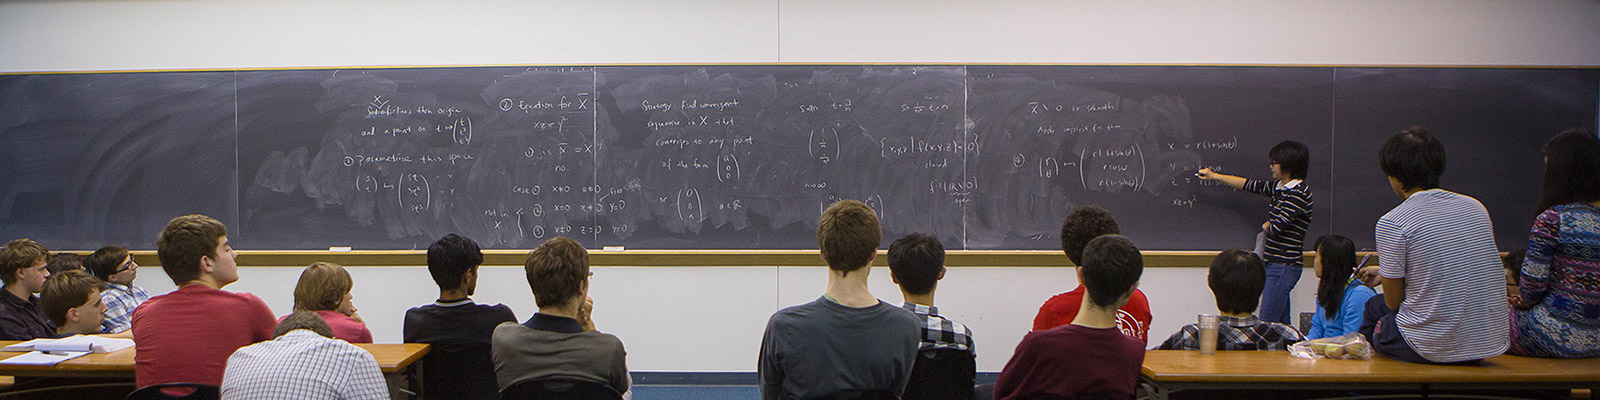 X
Satisfies then origin
and a point on t ↦ (t t² t³)
① Parametrize this space
(s t) ↦ (st st² st³)
② Equation for X̄
xz = y²
① is X̄ = X?
no.
case ① x≠0 z≠0
not in X
② x=0 z≠0 y=0
③ x≠0 z=0 y=0
Strategy. Find convergent
sequence in X that
converges to any point
of the form (a 0 0)
or (0 0 a) a∈ℝ
{x,y,z | f(x,y,z)=0}
closed
f⁻¹(ℝ\0)
open
X̄ \ 0 is smooth
Apply implicit fn thm
(r θ) ↦ (r(1+sinθ) r cosθ r(1-sinθ))
x = r(1+sinθ)
y =
z =
xz=y²